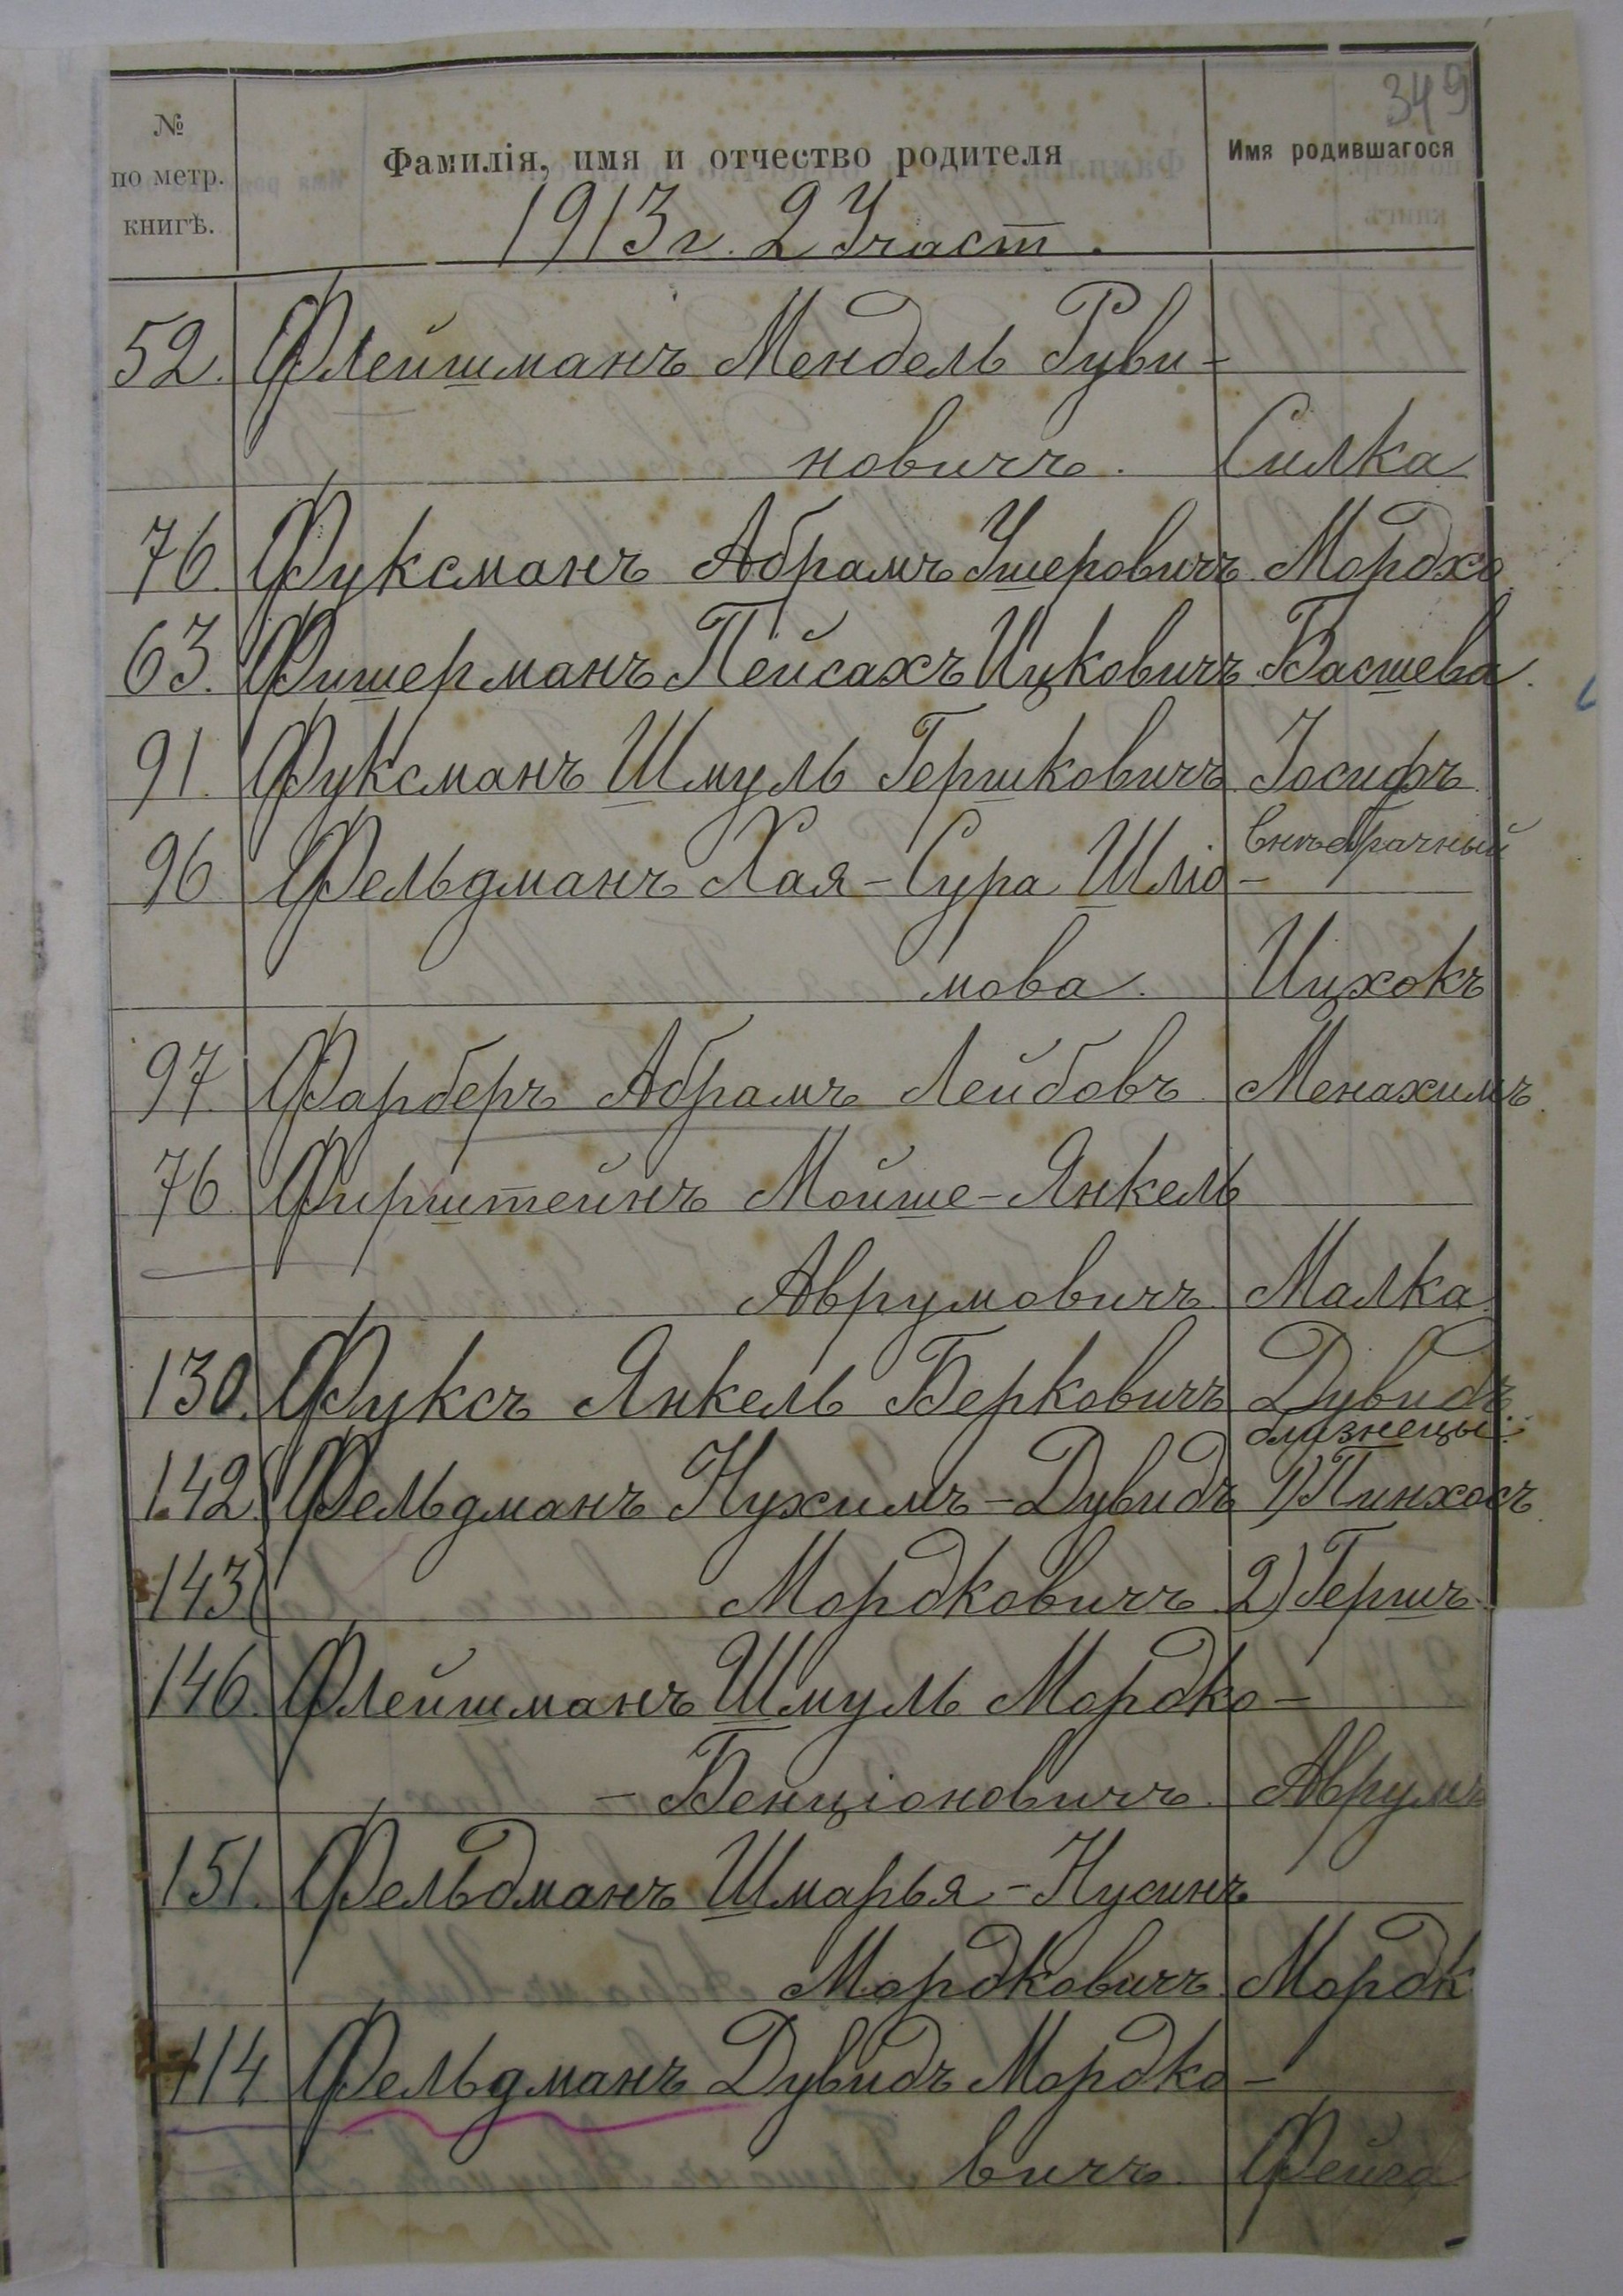 349
№ по метр. книгѣ.
Фамилія, имя и отчество родителя
Имя родившагося
1913 г. 2 Участ.
52. Флейшманъ Мендель Руви-
новичъ. Силка
76. Фуксманъ Абрамъ Ушеровичъ Мордхо
63. Фишерманъ Пейсахъ Ицковичъ Басшева.
91. Фуксманъ Шмуль Гершковичъ Іосифъ
внѣбрачный
96 Фельдманъ Хая-Сура Шліо-
мова. Ицхокъ
97. Фарберъ Абрамъ Лейбовъ Менахимъ
76. Фирштейнъ Мойше-Янкель
Аврумовичъ Малка
130. Фуксъ Янкель Берковичъ Дувидъ
близнецы:
142. Фельдманъ Нухимъ-Дувидъ 1) Пинхосъ
143 Мордковичъ 2) Гершъ
146. Флейшманъ Шмуль Мордко-
-Бенціоновичъ. Аврумъ
151. Фельдманъ Шмарья-Нусинъ
Мордковичъ Мордк
114 Фельдманъ Дувидъ Мордко-
вичъ. Фейга